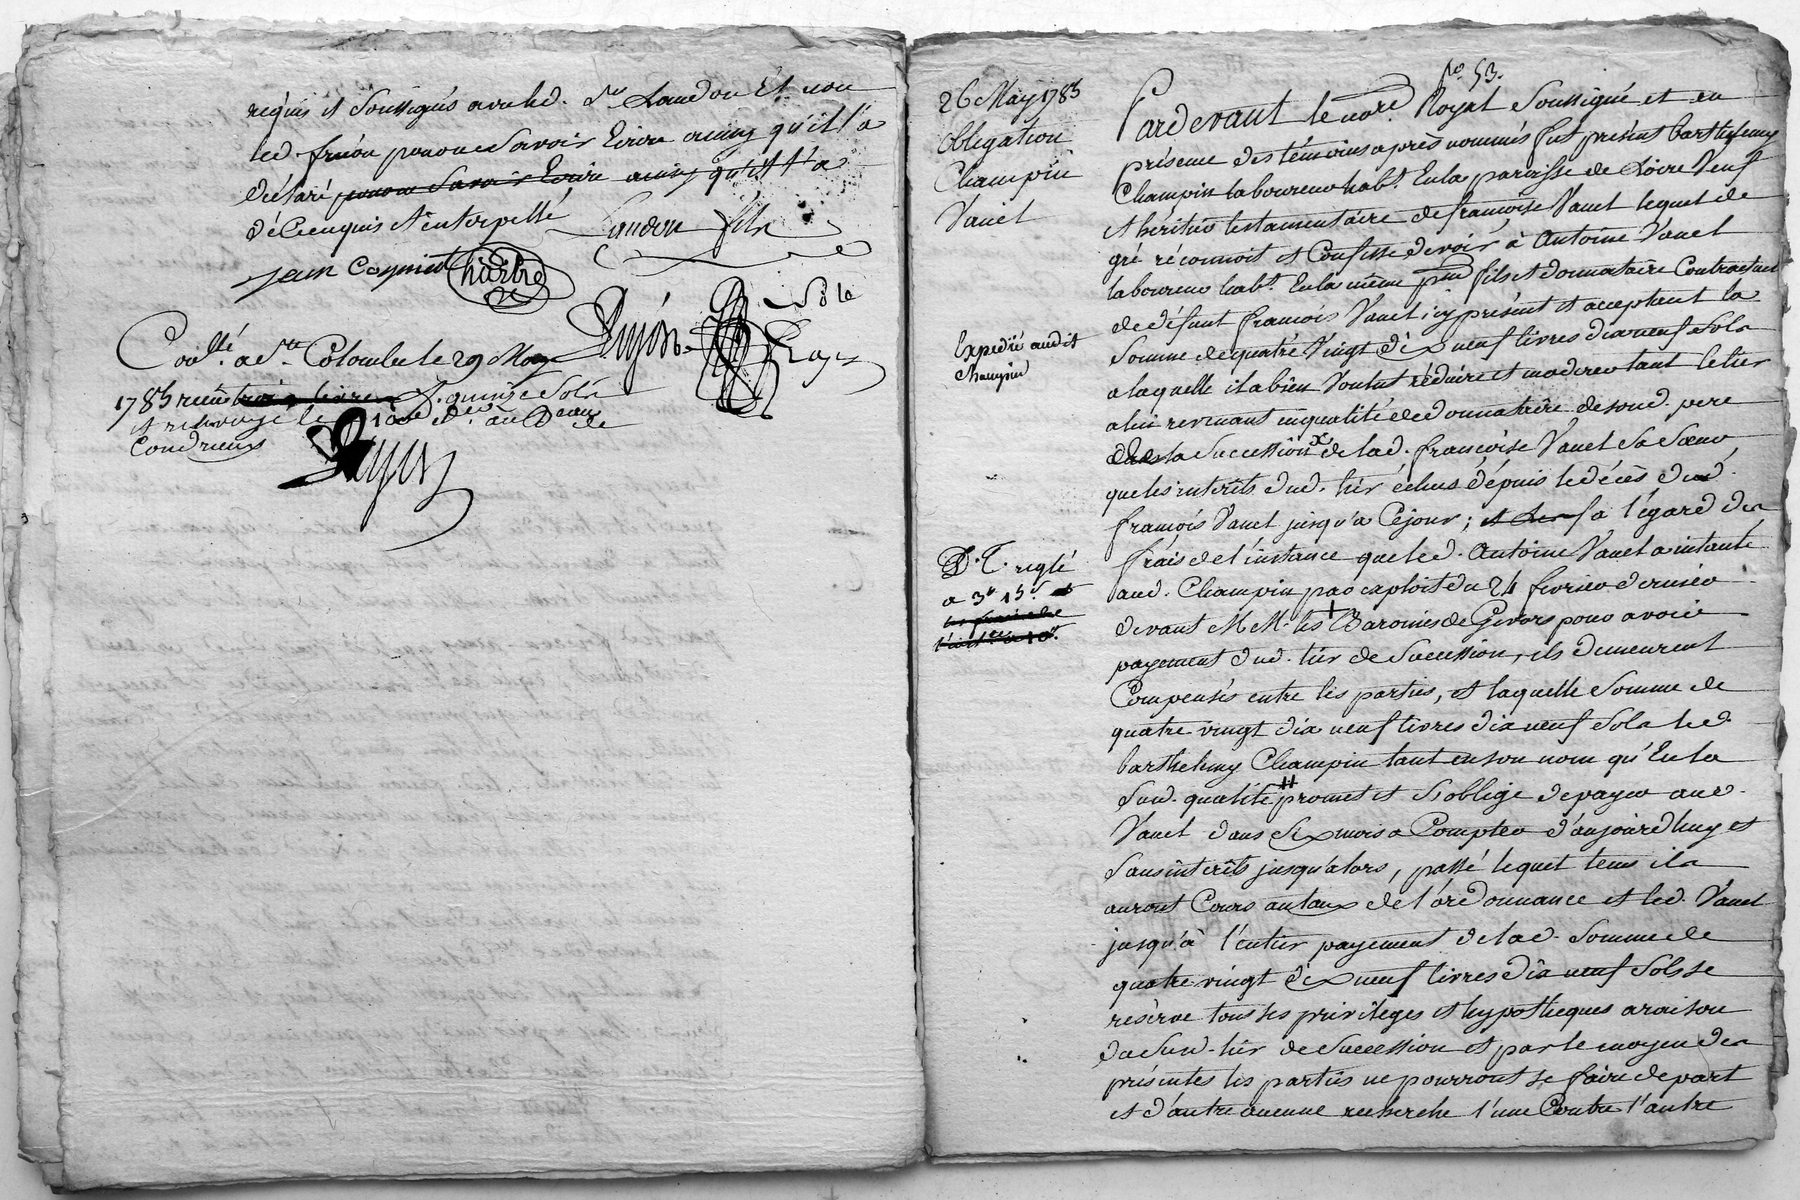 requis et soussignés avec led. Sr. Landon et non
led. frieou pour ne savoir Ecrire ainsy qu'il l'a
déclaré pour ne savoir Ecrire ainsy qu'il l'a
dÉ enquis et interpellé
Landon fils
jean Cognet
Pujon
Conllé. a Ste Colombe le 29 May
1785 reçu trois livres quinze sols
et renvoyé le au Beau de
Condrieux
26 May 1785
Obligation
Champin
Vanel
Expedié audit
Champin
D. C. reglé
a 3lt 15s. et
les frais de
no. 53.
Pardevant le nore. Royal soussigné et en
présence des témoins après nommés fut présent barthelemy
Champin laboureur habt. En la paroisse de Loire Veuf
et héritier testamentaire de françoise Vanel lequel de
gré réconnoit et Confesse devoir à Antoine Vanel
laboureur habt. En la même psse fils et donnataire Contractuel
de défunt françois Vanel icy présent et acceptant la
Somme de quatre Vingt dix neuf livres dix neuf Sols
a laquelle il a bien Voulut réduire et moderer tant le tier
a lui revenant en qualité de donnataire de son d. pere
dans la Succession x de lad. françoise Vanel Sa Sœur
que les interêts dud. tier échus dépuis le décès dud.
françois Vanel jusqu'a Cejour ; et des / a l'égard des
frais de l'instance que led. Antoine Vanel a intenté
aud. Champin par exploit du 24 fevrier dernier
devant MM. les + Baronies de Givors pour avoir
payement dud. tier de Succession, ils demeurent
Compensés entre les parties, et laquelle Somme de
quatre vingt dix neuf livres dix neuf Sols led.
barthelemy Champin tant en son nom qu'En la
Sud. qualité ++ promet et S'oblige de payer aud.
Vanel dans Six mois a Compter d'aujourdhuy et
Sans interêts jusqu'alors, passé lequel tems ils
auront Cours au taux de l'ordonnance et led. Vanel
jusqu'à l'entier payement de lad. Somme de
quatre vingt dix neuf livres dix neuf Sols se
reserve tous ses privileges et hypotheques a raison
du Sud. tier de Succession et par le moyen des
présentes les parties ne pourront se faire de part
et d'autre aucune recherche l'une Contre l'autre